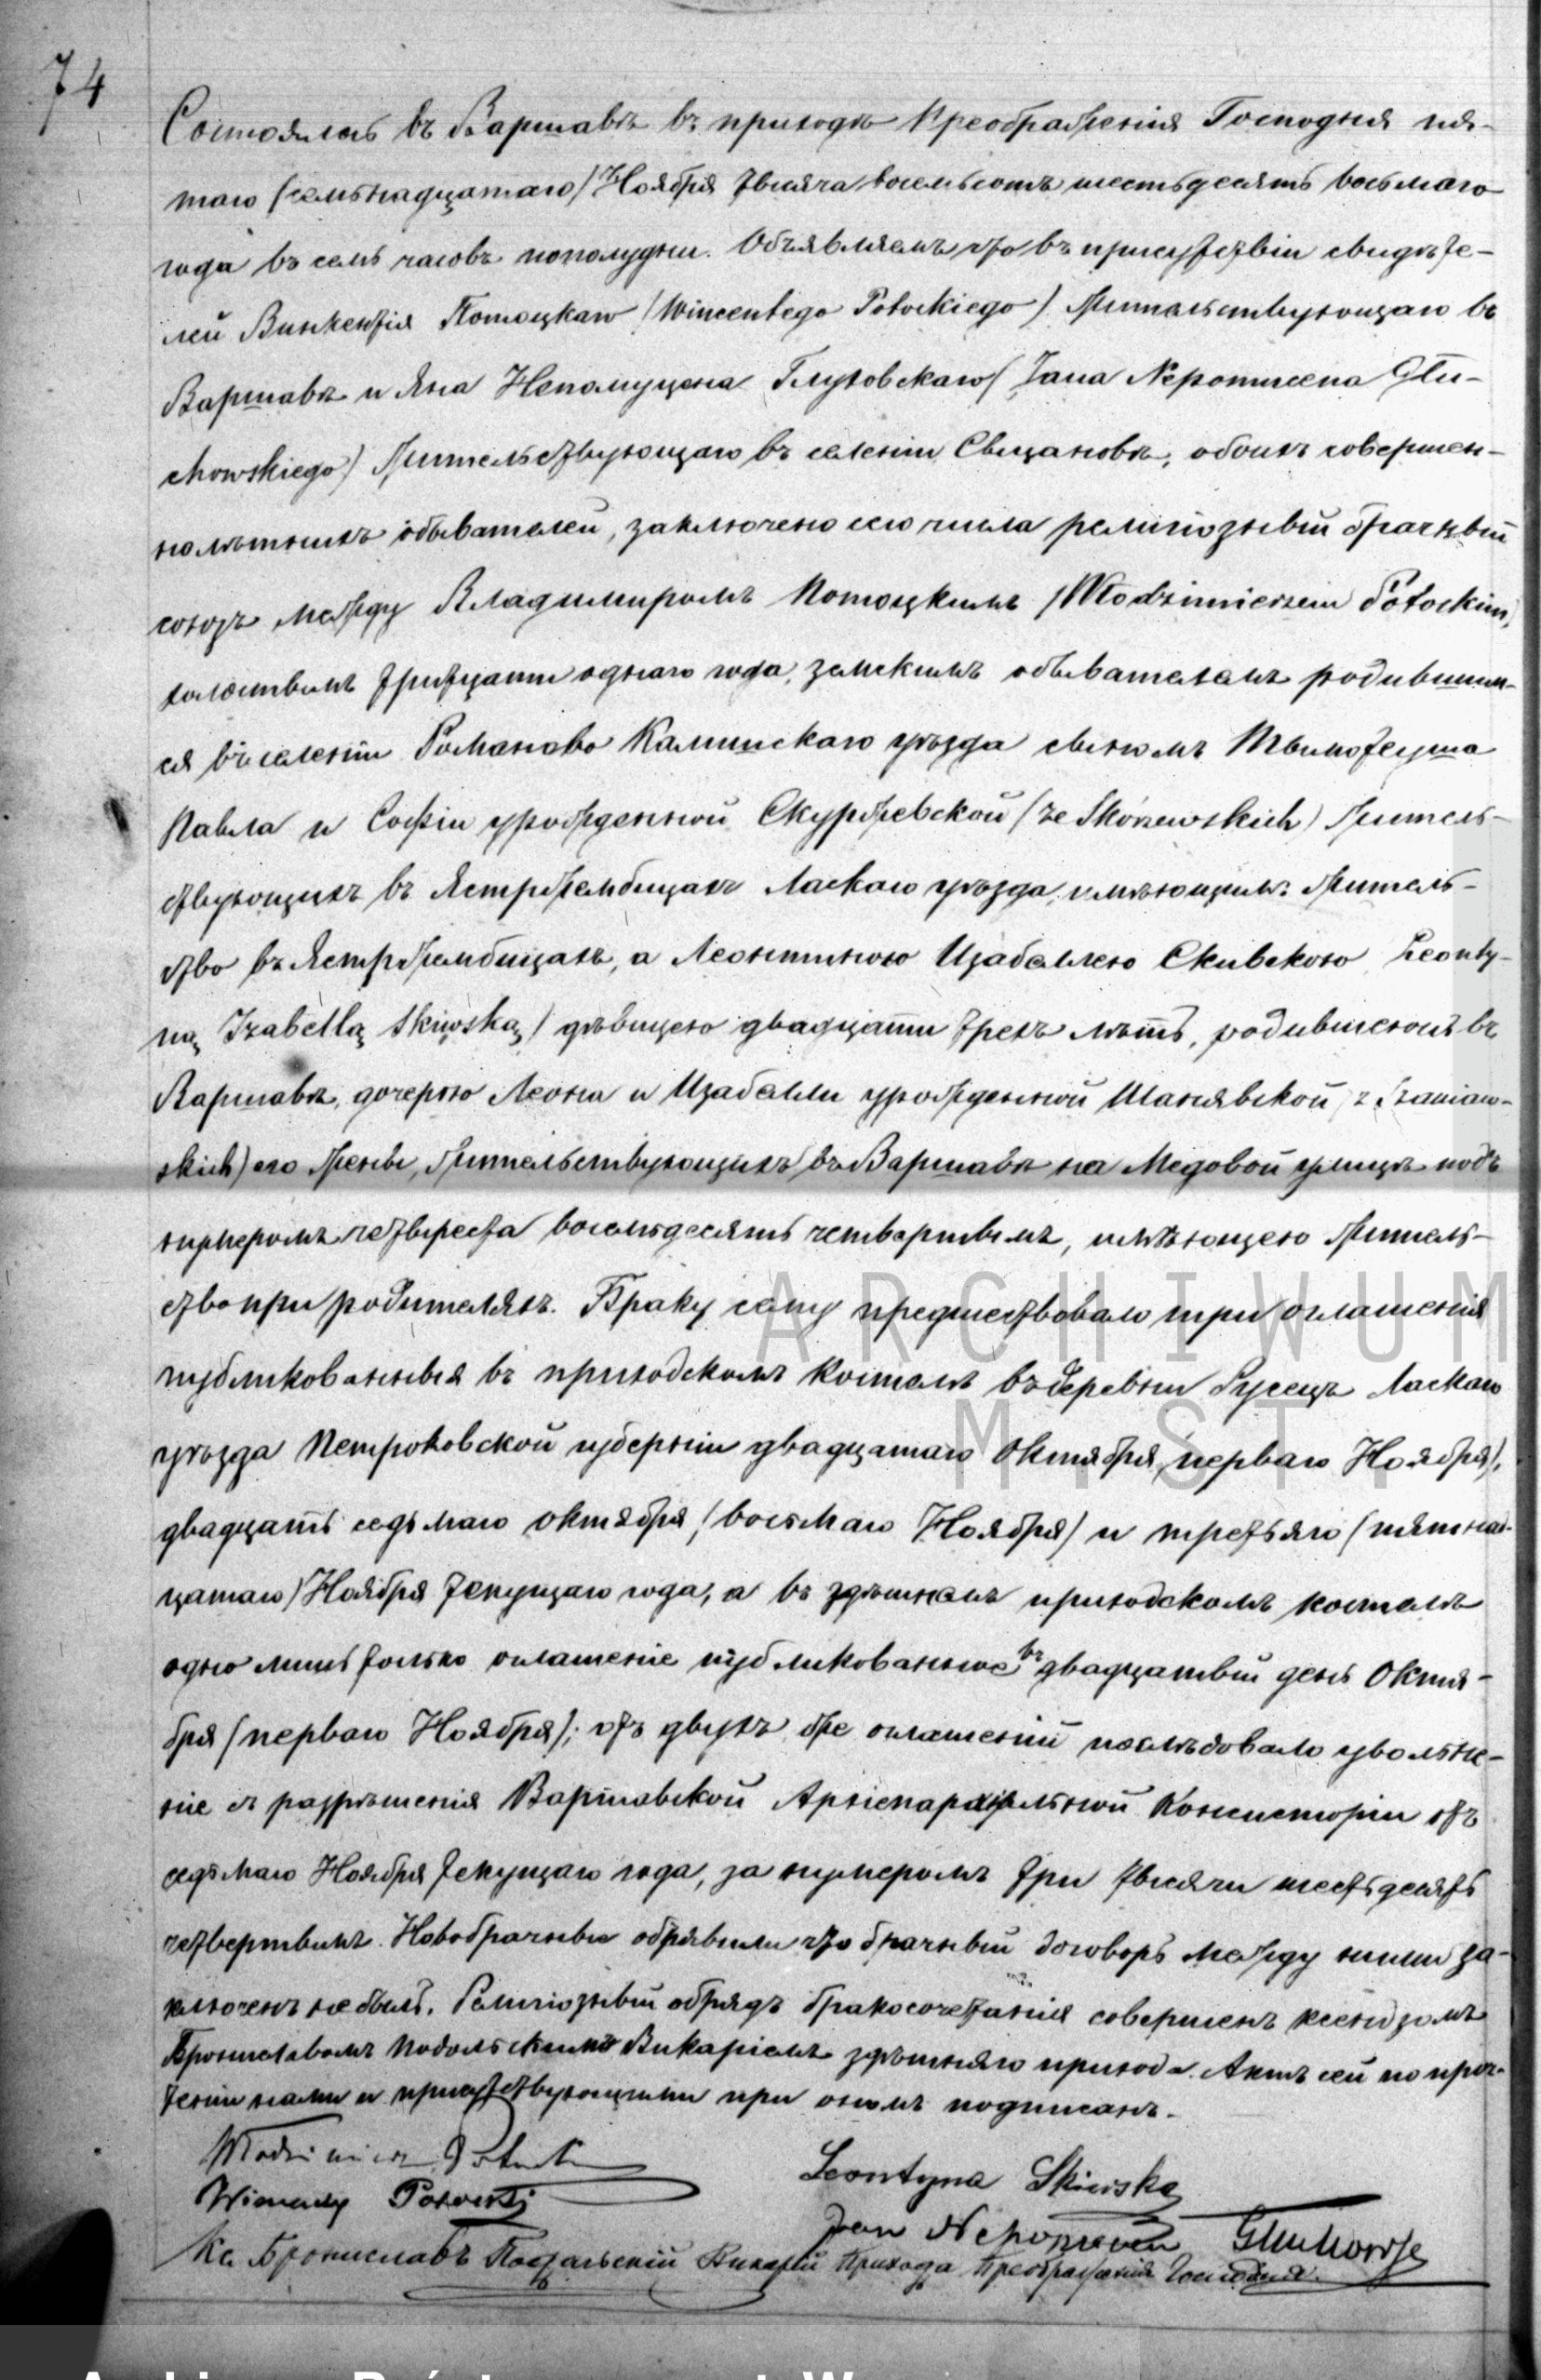 74
Состоялось въ Варшавѣ въ приходѣ Преображенія Господня пя-
таго (семьнадцатаго) Ноября тысяча восемьсотъ шестьдесятъ восьмаго
года въ семь часовъ пополудни. Объявляемъ что въ присутствіи свидѣте-
лей Викентія Потоцкаго (Wincentego Potockiego) жительствующаго въ
Варшавѣ и Яна Непомуцена Глуховскаго (Jana Nepomucena Głu-
chowskiego) жительствующаго въ селеніи Свецановѣ, обоихъ совершен-
нолѣтнихъ обывателей, заключено сего числа религіозный брачный
союзъ между Владимиромъ Потоцкимъ (Włodzimierzem Potockim)
холостымъ тритцати одного года, земскимъ обывателемъ родившим-
ся въ селеніи Романово Калишскаго уѣзда сыномъ Тымотеуша
Павла и Софіи урожденной Скуржевской (ze Skórzewskich) житель-
ствующихъ въ Ястржембицахъ Ласкаго уѣзда, имѣющимъ житель-
ство въ Ястржембицахъ, а Леонтиною Изабеллею Скивскою Leonty-
ną Izabellą Skiwską) дѣвицею двадцати трехъ лѣтъ, родившеюсь въ
Варшавѣ, дочерью Леона и Изабелли урожденной Шанявской z Szaniaw-
skich) его жены, жительствующихъ въ Варшавѣ на Медовой улицѣ подъ
нумеромъ четыреста восемьдесятъ четвертымъ, имѣющею житель-
ство при родителяхъ. Браку сему предшествовало три оглашенія
публикованныя въ приходскомъ костелѣ въ деревни Русецъ Ласкаго
уѣзда Петроковской губерніи двадцатаго Октября, перваго Ноября),
двадцать седьмаго октября (восьмаго Ноября) и третьяго (пятнад-
цатаго) Ноября текущаго года, а въ здѣшнемъ приходскомъ костелѣ
одно лишь только оглашеніе публикованное въ двадцатый день Октя-
бря (перваго Ноября); отъ двухъ же оглашеній послѣдовало увольне-
ніе съ разрѣшенія Варшавской Архіепархіальной Консисторіи отъ
седьмаго Ноября текущаго года, за нумеромъ три тысячи шестьдесятъ
четвертымъ. Новобрачные объявили что брачный договоръ между ними за-
ключенъ не былъ. Религіозный обрядъ бракосочетанія совершенъ ксендзомъ
Брониславомъ Подольскимъ Викаріемъ здѣшняго прихода. Актъ сей по проч-
теніи нами и присутствующими при ономъ подписанъ.
Włodzimierz Potocki
Leontyna Skiwska
Wincenty Potocki
Jan Nepomucen Głuchowski
Кс. Брониславъ Подольскій Викарій Прихода Преображенія Господня.
ARCHIWUM
M. ST.